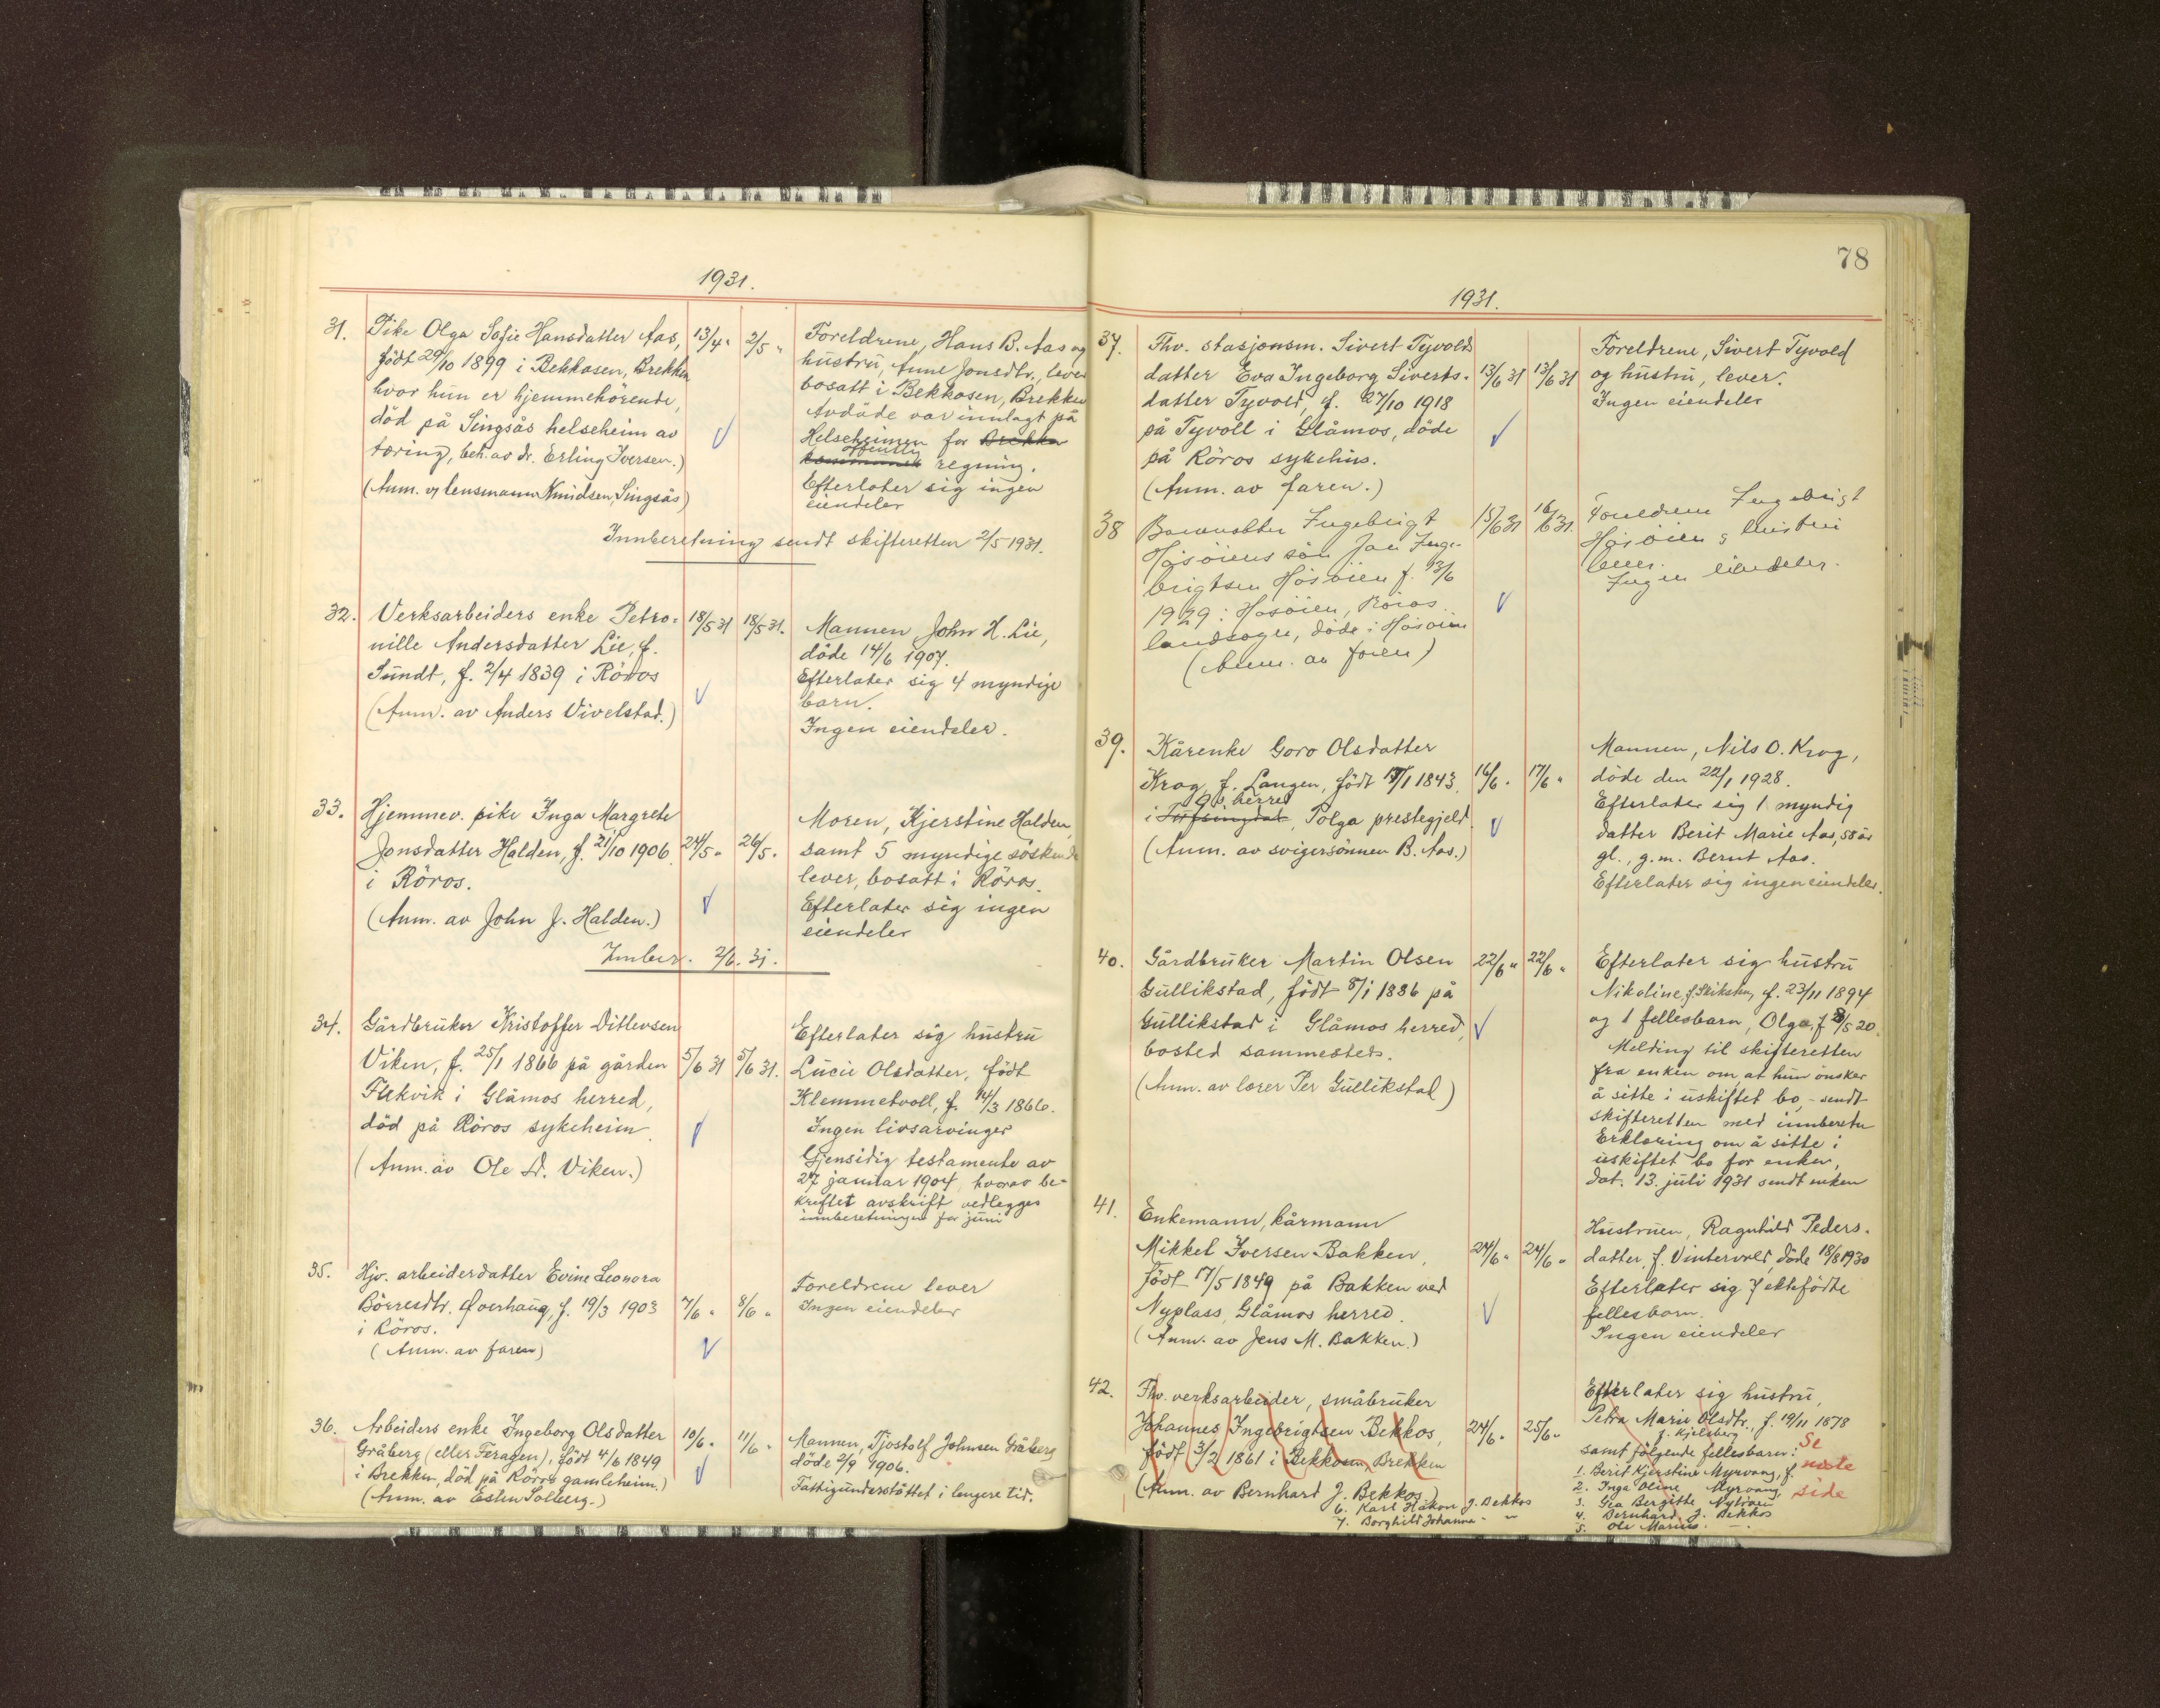 1931.
31. Pike Olga Sofie Hansdatter Aas, 13/4 " 2/5 "
født 29/10 1899 i Bekkosen, Brekken
hvor hun er hjemmehörende,
död på Singsås helseheim av
töring, beh. av dr. Erling Iversen.)
(Anm. v/ lensmann Knudsen, Singsås)
Foreldrene, Hans B. Aas og
hustru, Anne Jonsdtr., lever
bosatt i Bekkosen, Brekken
Avdöde var innlagt på
Helseheimen for Brekken
offentlig
kommunes regning.
Efterlater sig ingen
eiendeler
Innberetning sendt skifteretten 2/5 1931.
32. Verksarbeiders enke Petro= 18/5 31 18/5 31.
nille Andersdatter Lie, f.
Sundt, f. 2/4 1839 i Röros
(Anm. av Anders Vivelstad.)
Mannen John H. Lie,
döde 14/6 1907.
Efterlater sig 4 myndige
barn.
Ingen eiendeler.
33. Hjemmev. pike Inga Margrete
Jonsdatter Halden, f. 21/10 1906 24/5 " 26/5 "
i Röros.
(Anm. av John J. Halden.)
Moren, Kjerstine Halden,
samt 5 myndige söskende
lever, bosatt i Röros.
Efterlater sig ingen
eiendeler
Innber. 2/6. 31.
34. Gårdbruker Kristoffer Ditlevsen
Viken, f. 25/1 1866 på gården 5/6 31 5/6 31.
Flekvik i Glåmos herred,
död på Röros sykeheim
(Anm. av Ole D. Viken.)
Efterlater sig hustru
Lucie Olsdatter, født
Klemmetvoll, f. 14/3 1866.
Ingen livsarvinger
Gjensidig testamente av
27 januar 1904, hvorav be-
kreftet avskrift vedlegges
innberetningen for juni
35. Hjv. arbeiderdatter Evine Leonora
Börresdtr. Överhaug, f. 19/3 1903 7/6 " 8/6 "
i Röros.
(Anm. av faren)
Foreldrene lever
Ingen eiendeler
36. Arbeiders enke Ingeborg Olsdatter 10/6 " 11/6 "
Gråberg (eller Feragen), født 4/6 1849
i Brekken, död på Röros gamleheim.)
(Anm. av Esten Solberg.)
Mannen, Tjostolf Johnsen Gråberg
döde 2/9 1906.
Fattigunderstöttet i lengere tid.
78
1931.
37. Fhv. stasjonsm. Sivert Tyvolds
datter Eva Ingeborg Siverts- 13/6 31 13/6 31
datter Tyvold, f. 27/10 1918
på Tyvoll i Glåmos, döde
på Röros sykehus.
(Anm. av faren.)
Foreldrene, Sivert Tyvold
og hustru, lever.
Ingen eiendeler
38 Ingebrigt 15/6 31 16/6 31.
Høsöiens sön Inge-
brigtsen Høsöien f. 13/6
1929 i Høsöien, Röros
landsogn, döde i Høsöien
(Anm. av faren)
Foreldrene Ingebrigt
Høsöien & hustru
lever.
Ingen eiendeler.
39. Kårenke Goro Olsdatter
Krog, f. Langen, født 17/1 1843, 16/6 " 17/6 "
Os herred
i Tufsingdal, Tolga prestegjeld
(Anm. av svigersönnen B. Aas.)
Mannen, Nils O. Krog,
döde den 22/1 1928.
Efterlater sig 1 myndig
datter Berit Marie Aas, 58 år
gl., g.m. Bernt Aas.
Efterlater sig ingen eiendeler.
40. Gårdbruker Martin Olsen 22/6 " 22/6 "
Gullikstad, födt 8/1 1886 på
Gullikstad i Glåmos herred,
bosted sammesteds.
(Anm. av lærer Per Gullikstad)
Efterlater sig hustru
Nikoline, f. 23/11 1894
og 1 fellesbarn, Olga, f. 8/5 20.
Melding til skifteretten
fra enken om at hun önsker
å sitte i uskiftet bo, - sendt
skifteretten med innberetn
Erklæring om å sitte i
uskiftet bo for enken,
dat. 13. juli 1931 sendt enken
41. Enkemann, kårmann
Mikkel Iversen Bakken, 24/6 " 24/6 "
födt 17/5 1849 på Bakken ved
Nyplass, Glåmos herred.
(Anm. av Jens M. Bakken.)
Hustruen, Ragnhild Peders-
datter, f. Vintervold, döde 18/8 1930
Efterlater sig 7 ektefödte
fellesbarn.
Ingen eiendeler
42. Fhv. verksarbeider, småbruker
Johannes Ingebrigtsen Bekkos, 24/6 " 25/6 "
födt 3/2 1861 i Bekkosen, Brekken
(Anm. av Bernhard J. Bekkos)
Efterlater sig hustru,
Petra Marie Olsdtr., f. 19/11 1878
f. Kjelsberg
samt følgende fellesbarn: Se
1. Berit Kjerstine Myrvang, f. neste
2. Inga Oline Myrvang, side
3. Gea Bergitte Nytröen
4. Bernhard J. Bekkos
5. Ole Marius - " -
6. Karl Håkon J. Bekkos
7. Borghild Johanne - " -